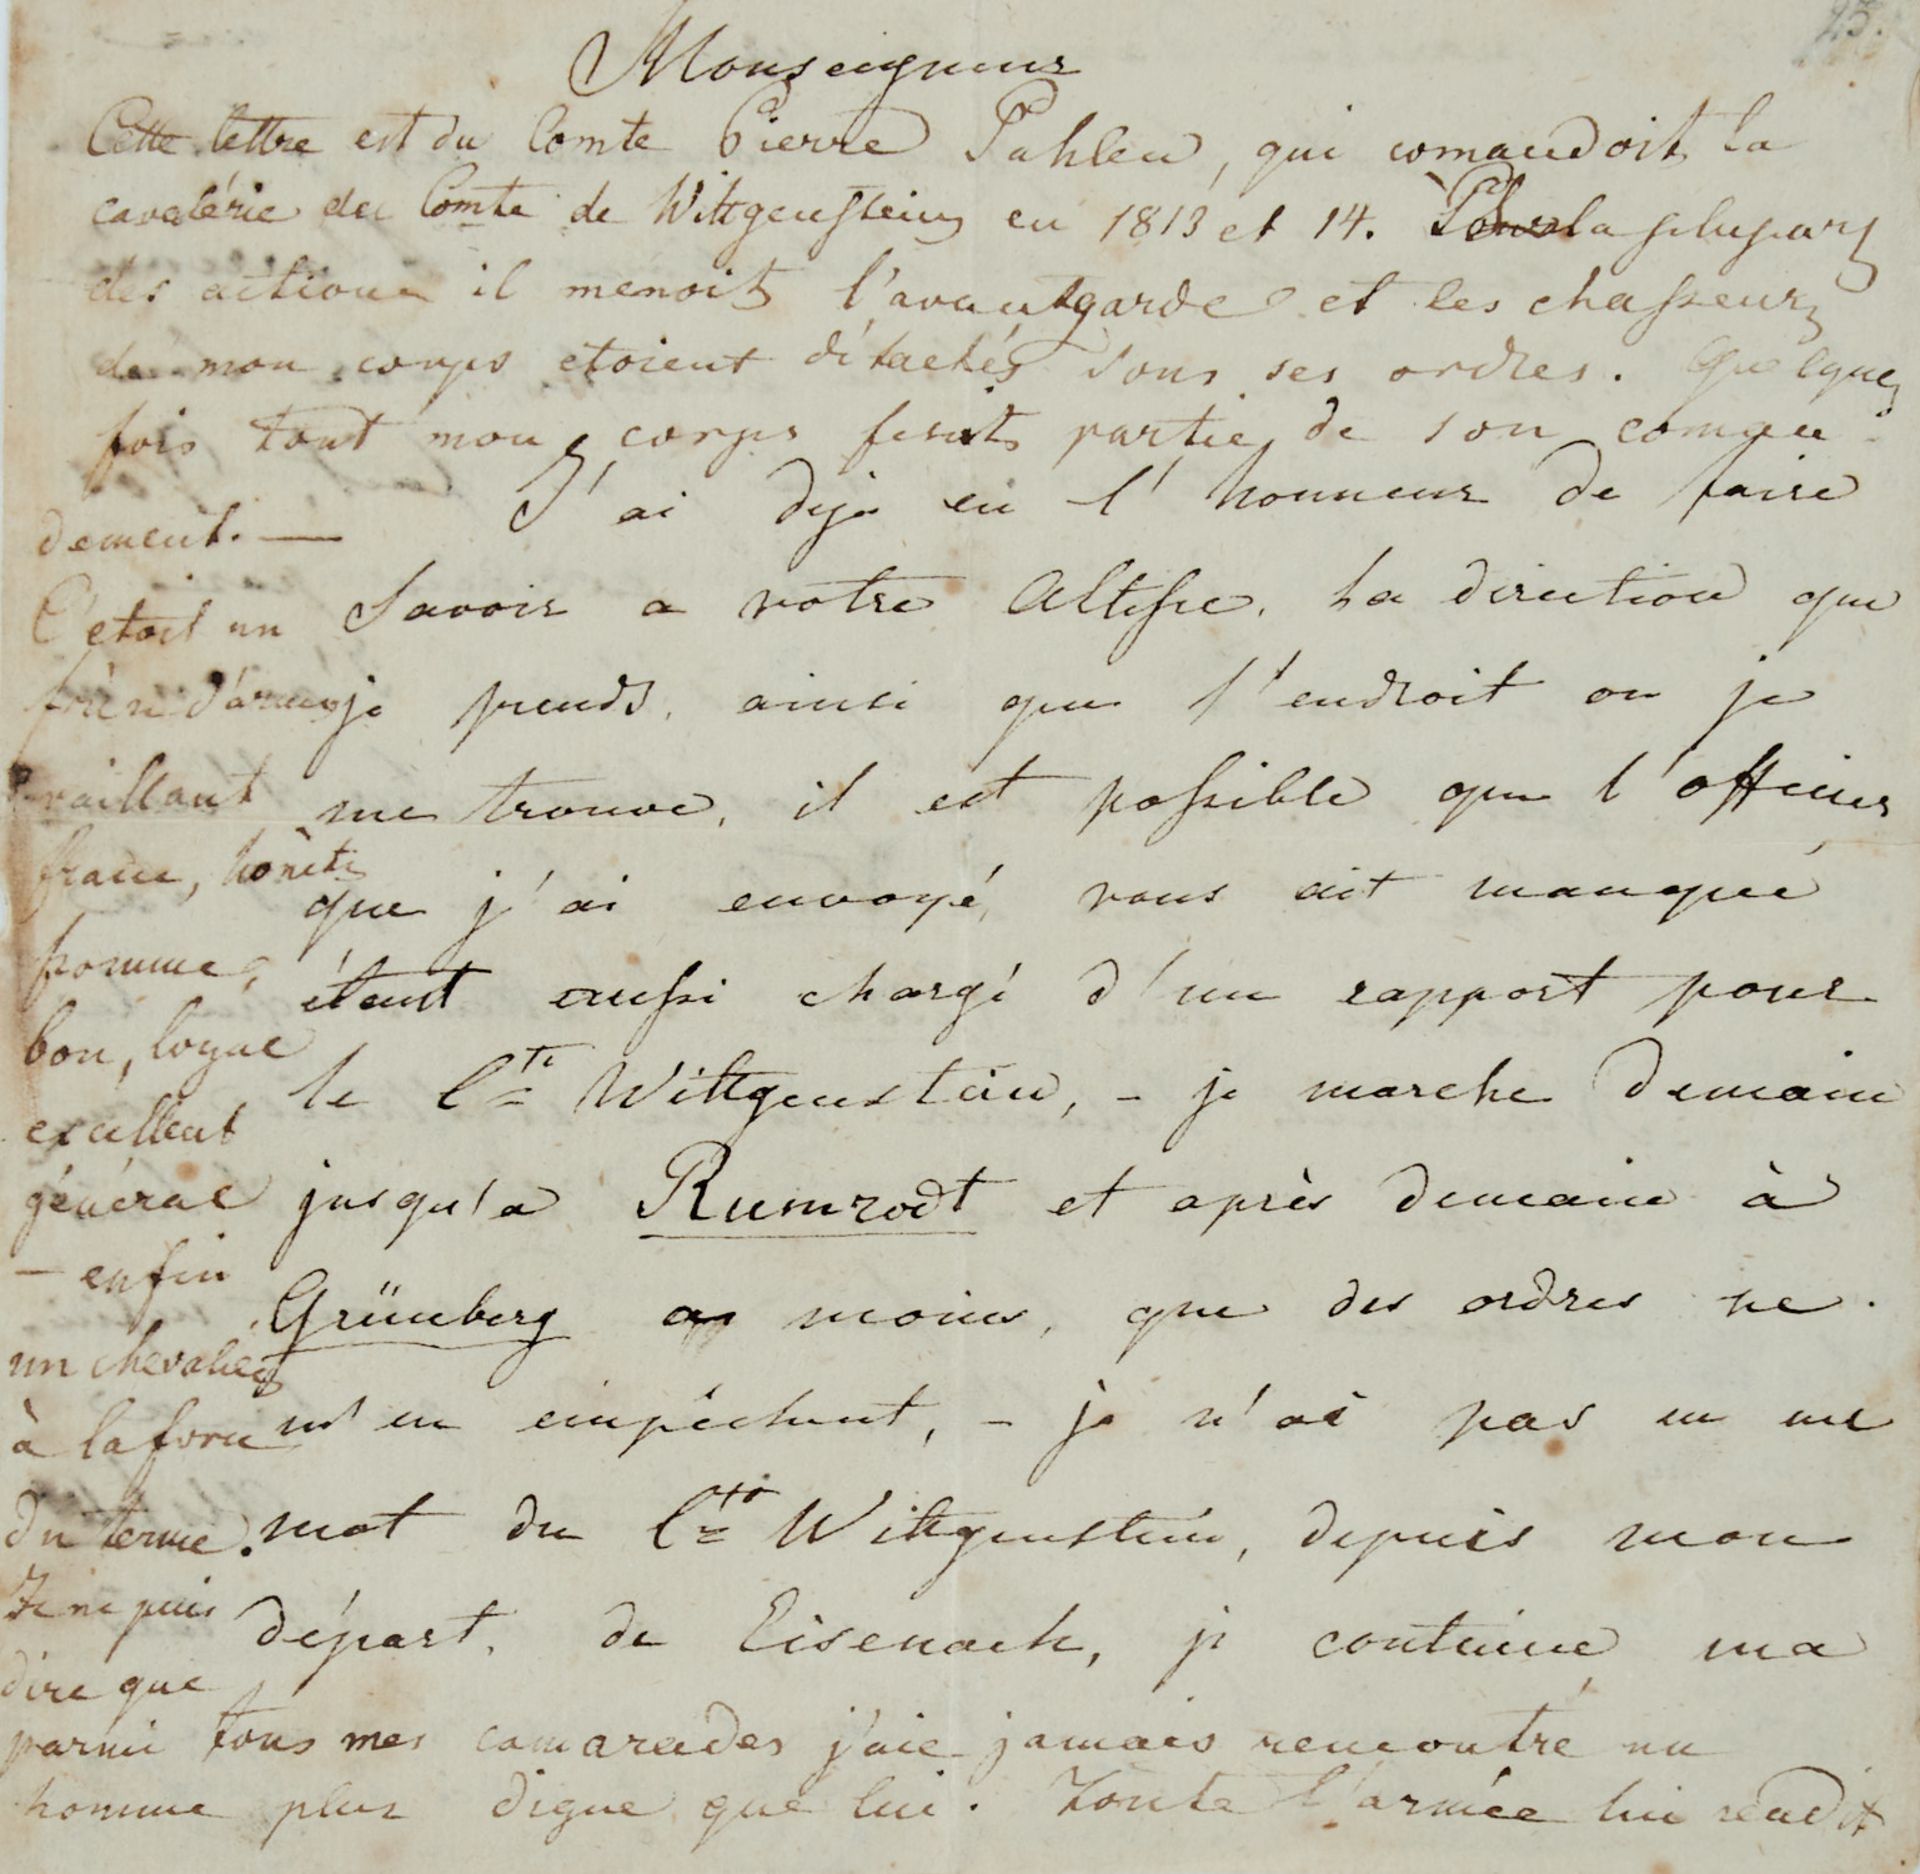 25.
Monseigneur
Cette lettre est du Comte Pierre Pahlen, qui comandoit la
cavalérie du Comte de Wittgenstein en 1813 et 14. la plupart
des actions il menoit l'avantgarde et les chasseurs
de mon corps etoient détachés sous ses ordres. Quelque
fois tout mon corps fesoit partie de son coman
dement. —
C'etoit un
frère d'armes
vaillant
franc, honète
homme,
bon, loyal
excellent
général
— enfin
un chevalier
à la force
du terme.
Je ne puis
dire que
parmi tous mes camarades j'aie jamais rencontré un
homme plus digne que lui. Toute l'armée lui rendit
J'ai deja eu l'honneur de faire
Savoir a votre Altesse, la direction que
je prends, ainsi que l'endroit ou je
me trouve, il est possible que l'officier
que j'ai envoyé, vous ait manqué
étant aussi chargé d'un rapport pour
le Cte Wittgenstein, – je marche demain
jusqu'a Rumrodt et après demain à
Grünberg a moins, que des ordres ne
m'en empêchent, – je n'ai pas eu un
mot du Cte Wittgenstein, depuis mon
départ, de Eisenach, je continue ma